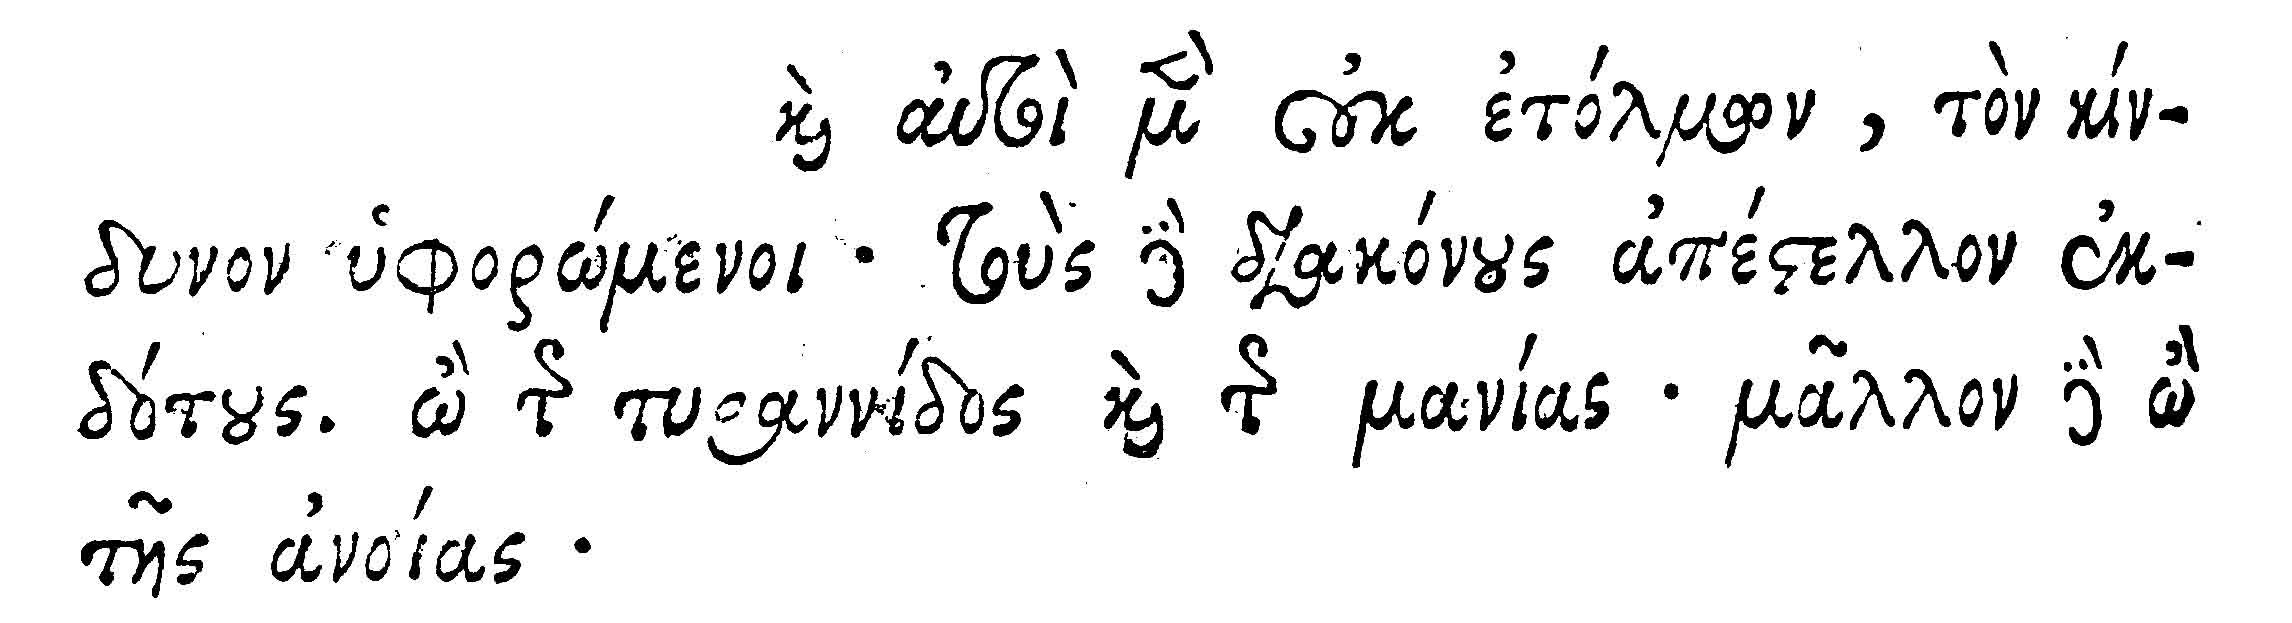 καὶ αὐτοὶ μὲν οὐκ ἐτόλμων, τὸν κίν-
δυνον ὑφορώμενοι· τοὺς δὲ διακόνους ἀπέστελλον ἐκ-
δότους. ὢ τῆς τυραννίδος καὶ τῆς μανίας· μᾶλλον δὲ ὢ
τῆς ἀνοίας·